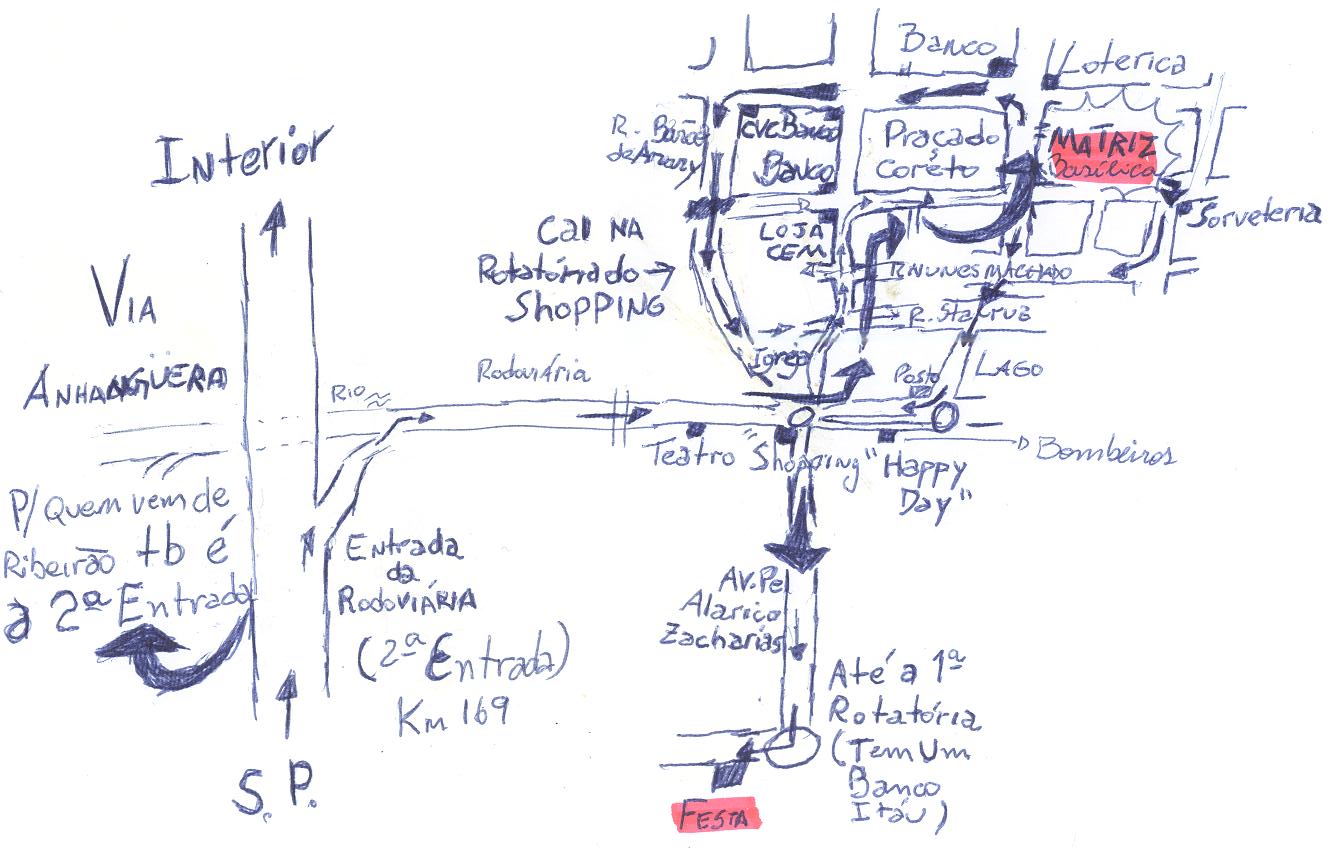 Interior
VIA
ANHANGÜERA
P/ Quem vem de
Ribeirão tb é
a 2ª Entrada
S. P.
Rio
Rodoviária
Entrada
da
RODOVIÁRIA
(2ª Entrada)
Km 169
Cai NA
Rotatória do
SHOPPING
R. Barão
de Araray
CVC Banco
Banco
LOJA
CEM
Banco
Loterica
Praça do
Coreto
MATRIZ
Basílica
Sorveteria
R. NUNES MACHADO
R. Sta Cruz
Igreja
Posto
LAGO
Teatro
"Shopping"
"Happy
Day"
Bombeiros
AV. Pe
Alarico
Zacharias
Até a 1ª
Rotatória
(Tem Um
Banco
Itáu)
FESTA